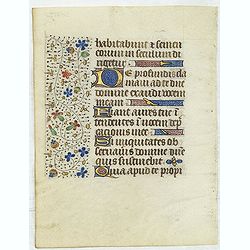 habitabunt et semen
eorum in seculum di
rigetur
De profundis cla
maui ad te dne
domine exaudi uocem
meam
Fiant aures tue i
tendentes i uocem dep
cacionis mee
Si iniquitates ob
seruaueris domine dne
quis sustinebit
Quia apud te propi